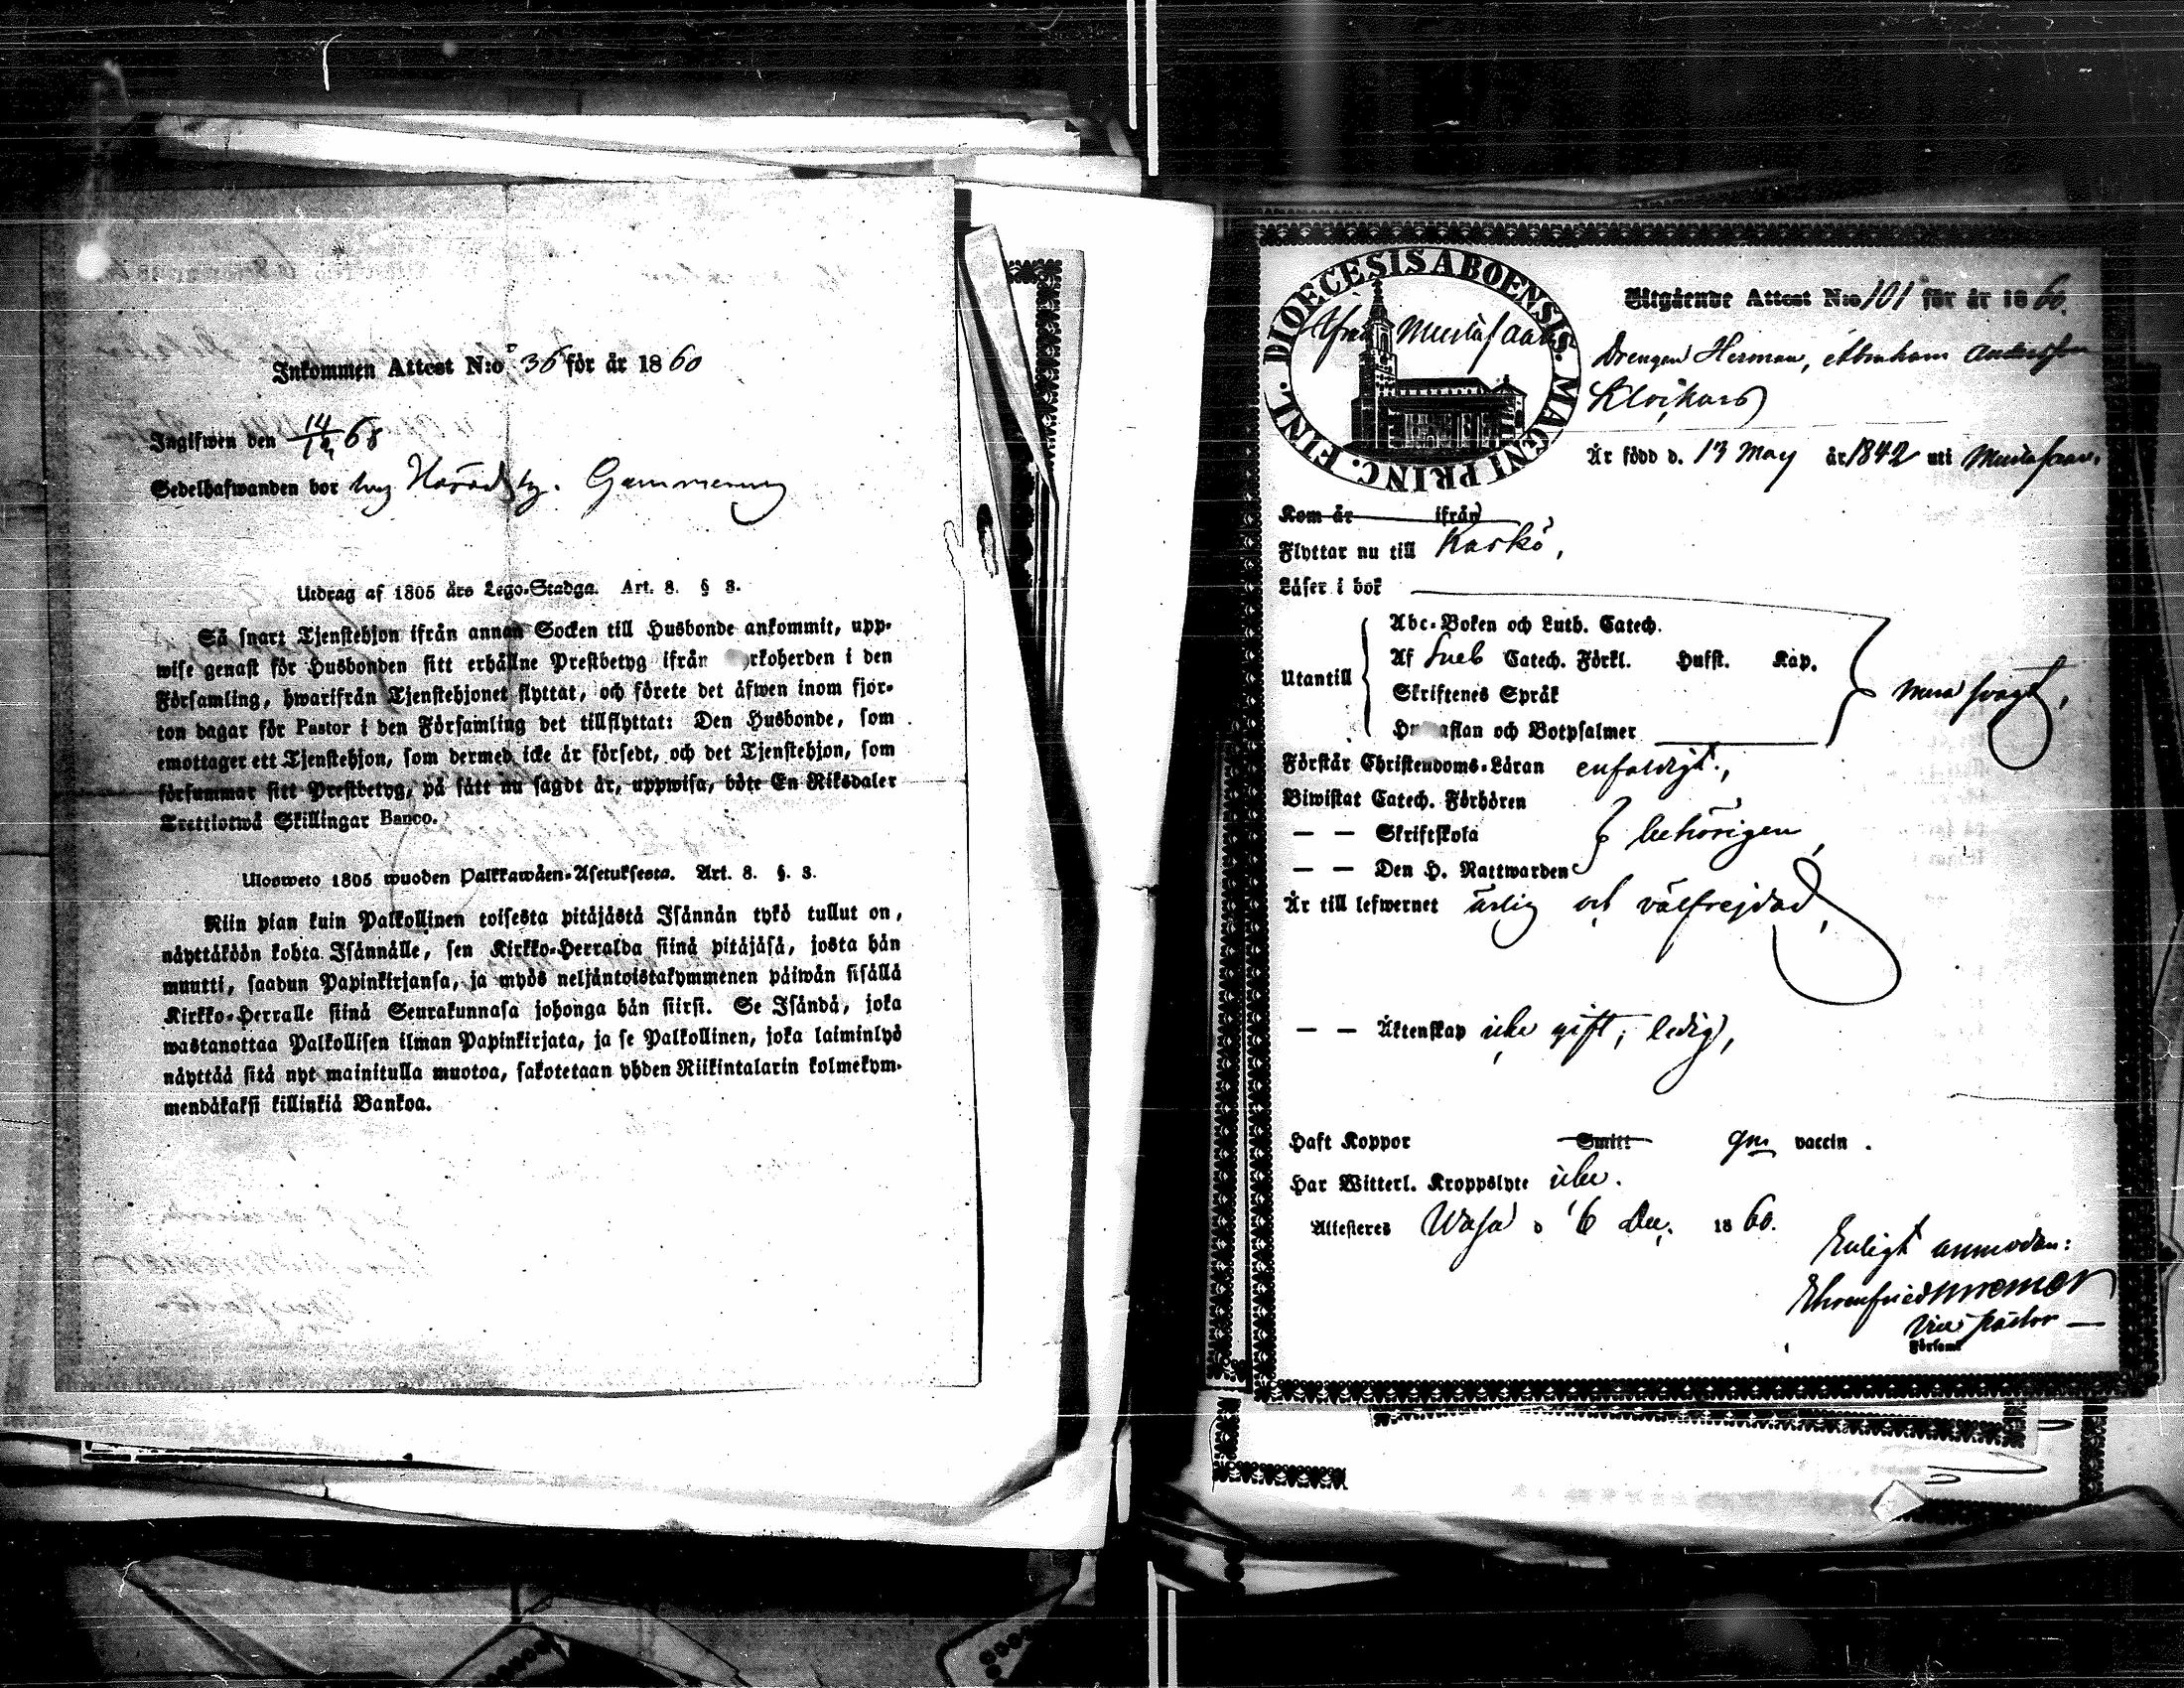 Inkommen Attest N:o 36 för år 1860
Ingifwen den 14/12 60
Sedelhafwanden bor hos Häradsh. Gummerus
Utdrag af 1805 års Lego-Stadga. Art. 8. § 3.
Så snart Tjenstehjon ifrån annan Socken till Husbonde ankommit, upp-
wise genast för Husbonden sitt erhållne Prestbetyg ifrån rkoherden i den
Församling, hwarifrån Tjenstehjonet flyttat, och förete det äfwen inom fjor-
ton dagar för Pastor i den Församling det tillflyttat: Den Husbonde, som
emottager ett Tjenstehjon, som dermed icke är försedt, och det Tjenstehjon, som
försummar sitt Prestbetyg, på sätt nu sagdt är, uppwisa, böte En Riksdaler
Trettiotwå Skillingar Banco.
Ulosweto 1805 wuoden Palkkawäen-Asetuksesta. Art. 8. §. 3.
Niin pian kuin Palkollinen toisesta pitäjästä Isännän tykö tullut on,
näyttäköön kohta Isännälle, sen Kirkko-Herralda siinä pitäjäsä, josta hän
muutti, saadun Papinkirjansa, ja myös neljäntoistakymmenen päiwän sisällä
Kirkko-Herralle siinä Seurakunnasa johonga hän siirsi. Se Isändä, joka
wastanottaa Palkollisen ilman Papinkirjata, ja se Palkollinen, joka laiminlyö
näyttää sitä nyt mainitulla muotoa, sakotetaan yhden Riikintalarin kolmekym-
mendäkaksi killinkiä Bankoa.
FINL. DIOECESIS ABOENSIS. MAGNI PRINC.
Ifrån Mustasaari
Utgående Attest N:o 101 för år 1860.
Drengen Herman, Abraham Andersson
Klockars
Är född d. 13 May år 1842 uti Mustasaari.
Kom år ifrån
Flyttar nu till Kaskö,
Läser i bok
Utantill
Abc-Boken och Luth. Catech.
Af Sueb Catech. Förkl. Husst. Kap.
Skriftenes Språk
Hu aflan och Botpsalmer
svagt,
Förstår Christendoms-Läran enfaldigt,
Biwistat Catech. Förhören
— — Skriftskola behörigen,
— — Den H. Nattwarden
Är till lefwernet ärlig och välfrejdad,
— — Äktenskap icke gift; ledig,
Haft Koppor Smitt gm vaccin.
Har Witterl. Kroppslyte icke.
Attesteras Wasa d 6 Dec. 1860.
Enligt anmodan:
Ehrenfried
Vice pastor —
Församl